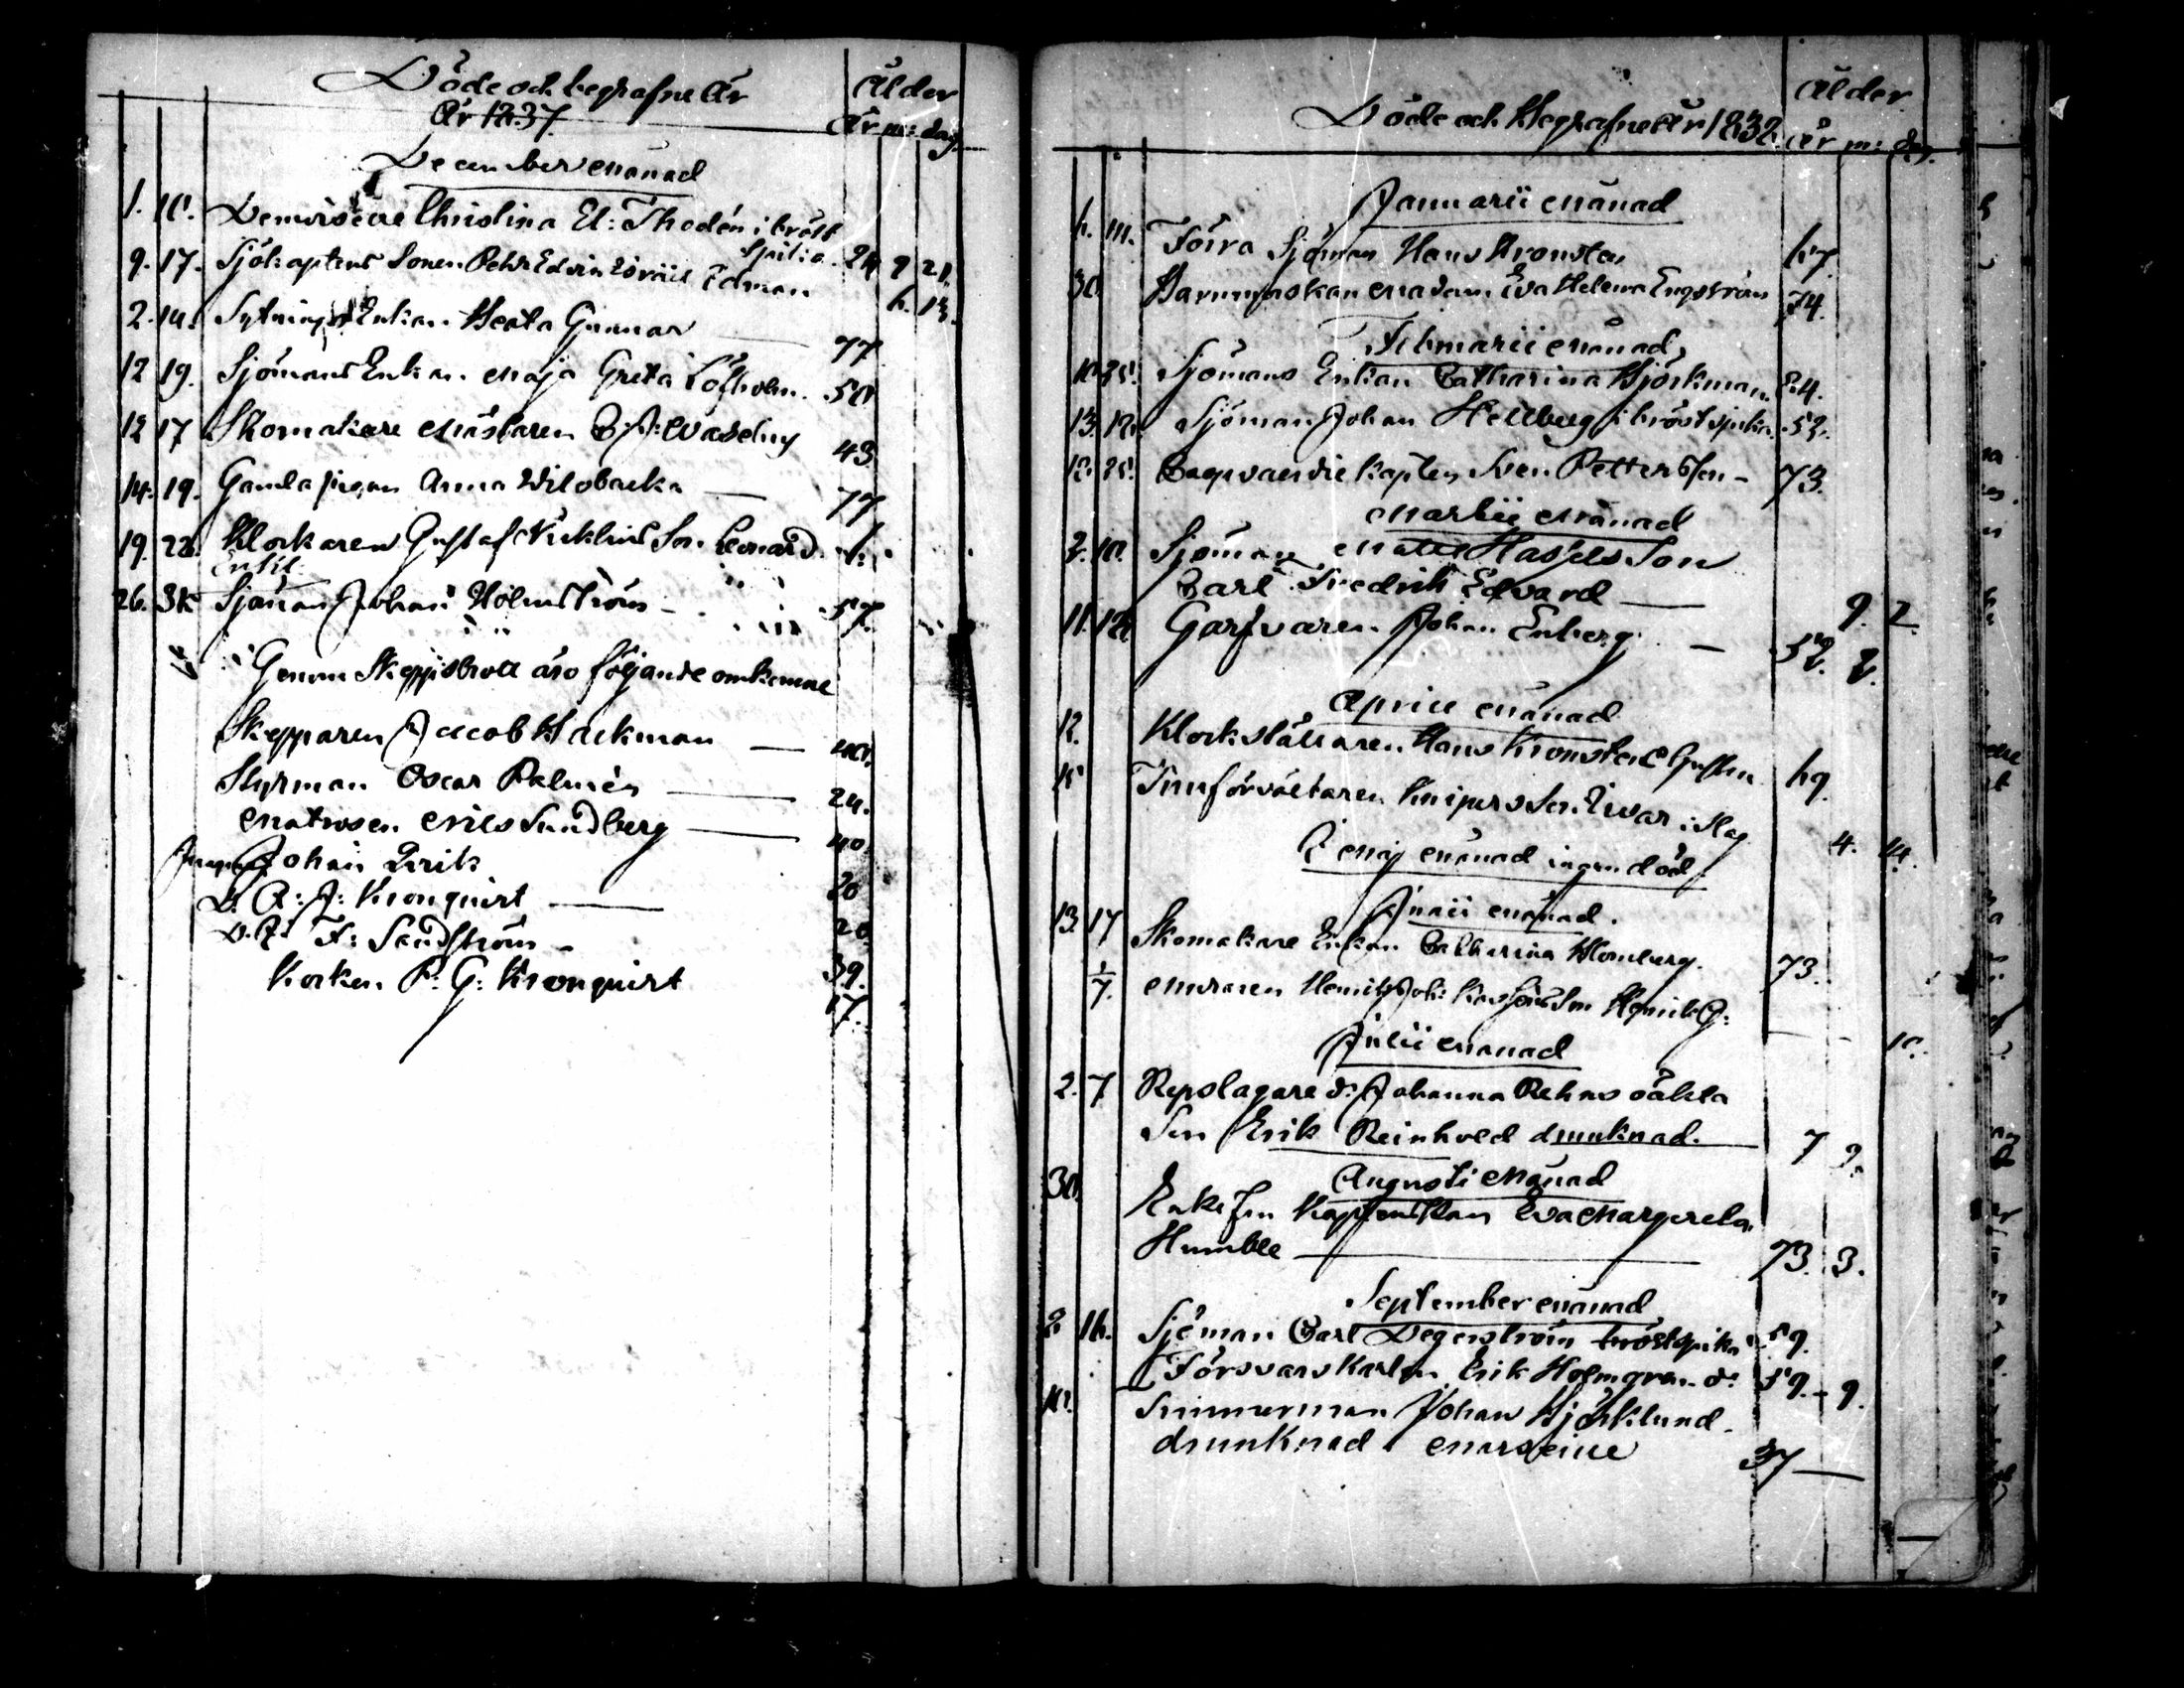 Döde och begrafne År
År 1837.
Ålder
År m: dag.
December Månad
1. 10. Demoiselle Christina El: Thodén i bröst
Spilia. 24 9 21.
9. 17. Sjökaptens Sonen Pehr Edvin Edman 6. 13.
2. 14. Sytnings Enkan Beata Gunnar — 77
12 19. Sjömans Enkan Maja Greta Löfholm. 50
12 17 Skomakare Mästaren 43
14. 19. Gamla pigan Anna — 77
19. 22. Klockaren Gustaf Nicklins Son Leonard
Enkl.
26. Sjöman Johan Holmström — 57.
Genom Skeppsbrott äro följande omkomne
Skepparen Jacob Backman — 40.
Styrman Oscar Palmén — 24.
Matrosen Nils Sundberg — 40
Jungm Johan Erik 20
D. A: J: Kronquist — 20
D. F: Sandström — 39.
Kocken P: G: Kronquist 17.
Döde och Begrafne År 1838.
Ålder
År m: dag.
Januarii Månad
Förra Sjöman Hans Kronsten 67
30 Barnmorskan Madam Eva Helena Engström 74.
Februarii Månad
Sjömans Enkan Catharina Björkman 84.
13. 18. Sjöman Johan Hellberg i bröstspilia. 52.
Sven Petterson — 73.
Martii Månad
2. 10. Sjöman Matts Son
Carl Fredrik Edvard — 9. 2.
11. 18. Garfvaren Johan Enberg — 52. 2.
April Månad
12. Klockställaren Hans Kronsten 69
15 Knipers Son Ivar i Slag 4. 14.
I Maj Månad ingen död
Junii Månad.
13. 17 Skomakare Enkan Catharina Blomberg. 73.
1/7. Muraren Henrik Joh: Son Henrik G: — 10.
Julii Månad
2. 7 Repslagare d: Johanna Rehns oäkta
Son Erik Reinhold drunknad. 7 2.
Augusti Månad
30. Enkefru Kaptenskan Eva Margareta
Humble — 73. 3.
September Månad
2 16. Sjöman Carl Degerström bröstspilia 59.
Försvars Karlen Erik Holmgren d: 59. 9.
10. Timmerman Johan Björklund.
drunknad Marseille 37 —